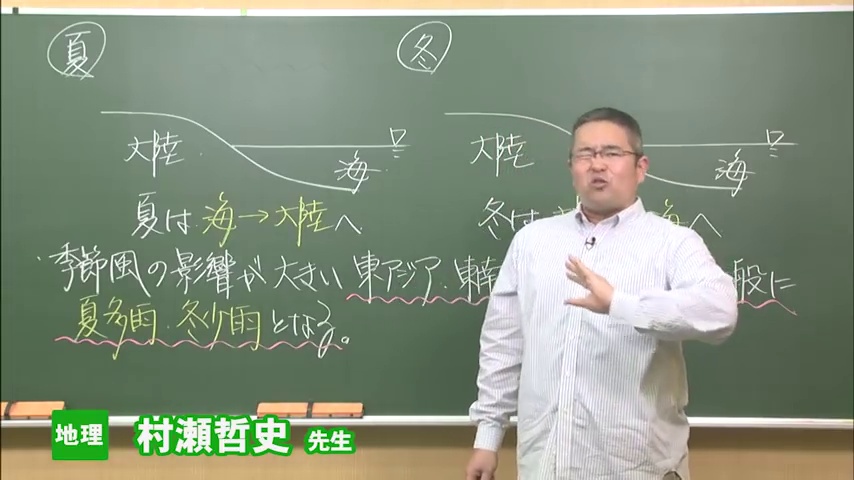 夏
冬
大陸 海
大陸 海
夏は 海→大陸へ
冬は 海へ
季節風の影響が大きい東アジア・東南 般に
夏多雨・冬少雨となる。
地理 村瀬哲史 先生